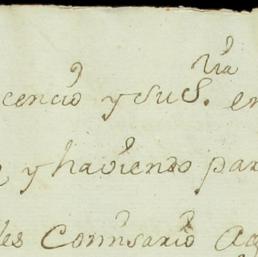 cencio y su S.ria en
y haviendo par
les Comisario Ag